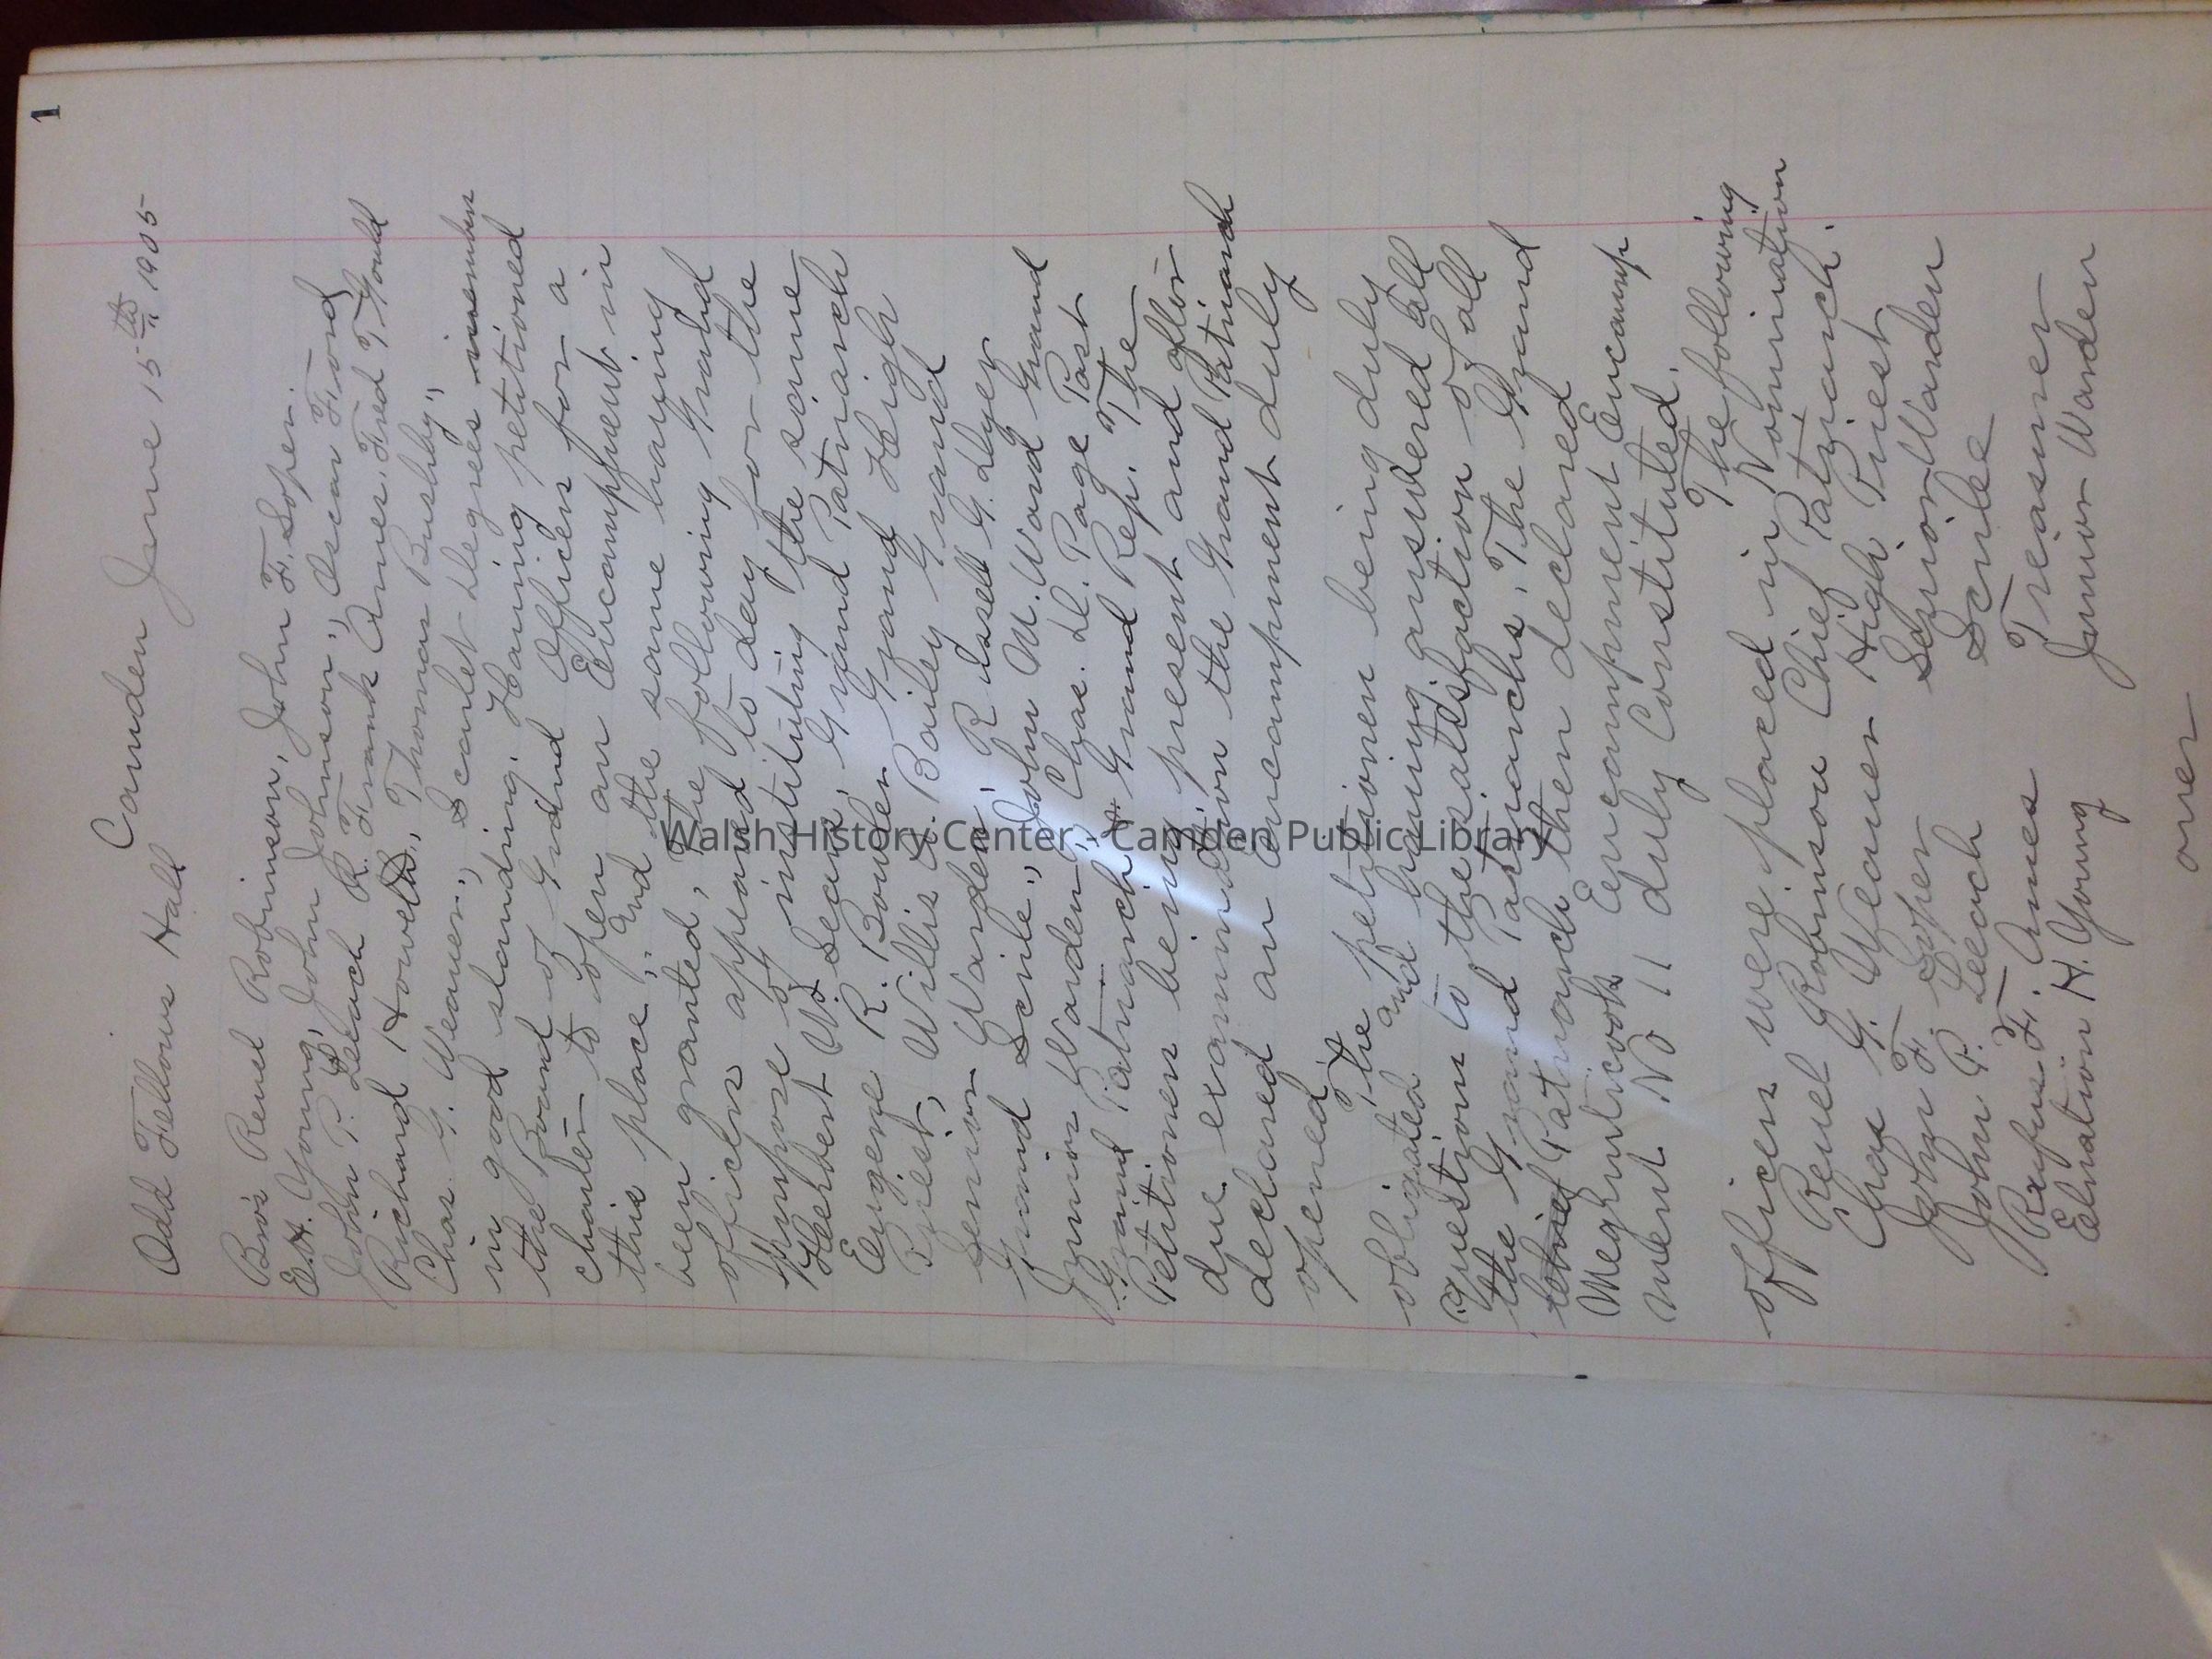 1
Odd Fellows Hall Camden June 15th 1905
Bro's Reuel Robinson, John F. Soper.
E.H. Young, John Johnson, Oscar Fiord
John P. Leach R. Frank Ames, Fred T Gould
Richard Howells, Thomas Bushby,
Chas. G. Weaver, Scarlet Degrees members
in good standing. Having petitioned
the Board of Grand Officers for a
charter to open an Encampment in
this place, and the same having
been granted, The following Grand
officers appeared to day for the
purpose of instituting the same
Herbert W. Sears, Grand Patriarch
Eugene R. Bowler Grand High
Priest, Willis A. Bailey Grand
Senior Warden, Russell G. Dyer
Grand Scribe, John M. Ward Grand
Junior Warden, Chas. D. Page Past
Grand Patriarch & Grand Rep. The
Petitioners being present and after
due examination the Grand Patriarch
declared an Encampment duly
opened. The petitioners being duly
obligated and having answered all
questions to the satisfaction of all
the Grand Patriarchs, The Grand
Patriarch then declared
Megunticook Encampment Encamp
ment No 11 duly Constituted.
The following
officers were placed in Nomination
Reuel Robinson Chief Patriarch.
Chas G. Weaver High Priest
John F. Soper Senior Warden
John P. Leach Scribe
Rufus F. Ames Treasurer
H. Young Junior Warden
over
Walsh History Center - Camden Public Library